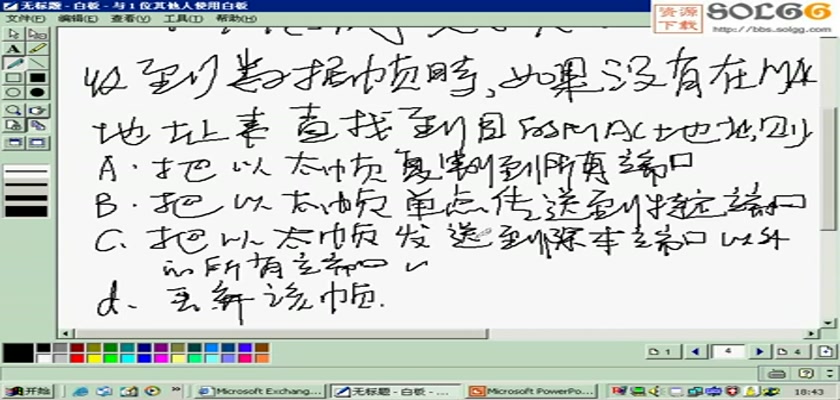 无标题 - 白板 - 与 1 位其他人使用白板
文件(F) 编辑(E) 查看(V) 工具(T) 帮助(H)
资源下载
SOLGG
http://bbs.solgg.com
收到数据帧时,如果没有在MAC
地址表查找到目的MAC地址,则
A. 把以太帧复制到所有端口
B. 把以太帧单点传送到特定端口
C. 把以太帧发送到除本端口以外
的所有端口
d. 丢弃该帧.
1 4 4
开始 Microsoft Exchang... 无标题 - 白板 - ... Microsoft PowerPo... 18:43